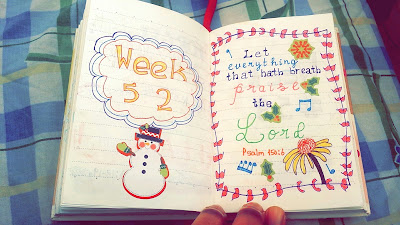 Week
52
Let
everything
that hath breath
praise
the
Lord
Psalm 150:6